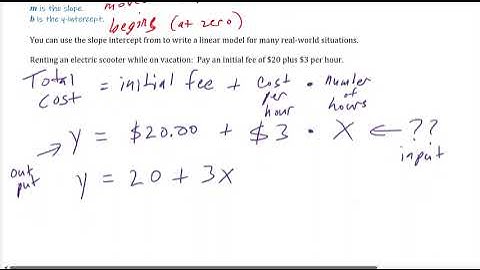 m is the slope.
b is the y-intercept. begins (at zero)
You can use the slope intercept from to write a linear model for many real-world situations.
Renting an electric scooter while on vacation: Pay an initial fee of $20 plus $3 per hour.
Total Cost = initial fee + Cost per hour · number of hours
y = $20.00 + $3 · X ← ??
output → input
y = 20 + 3x